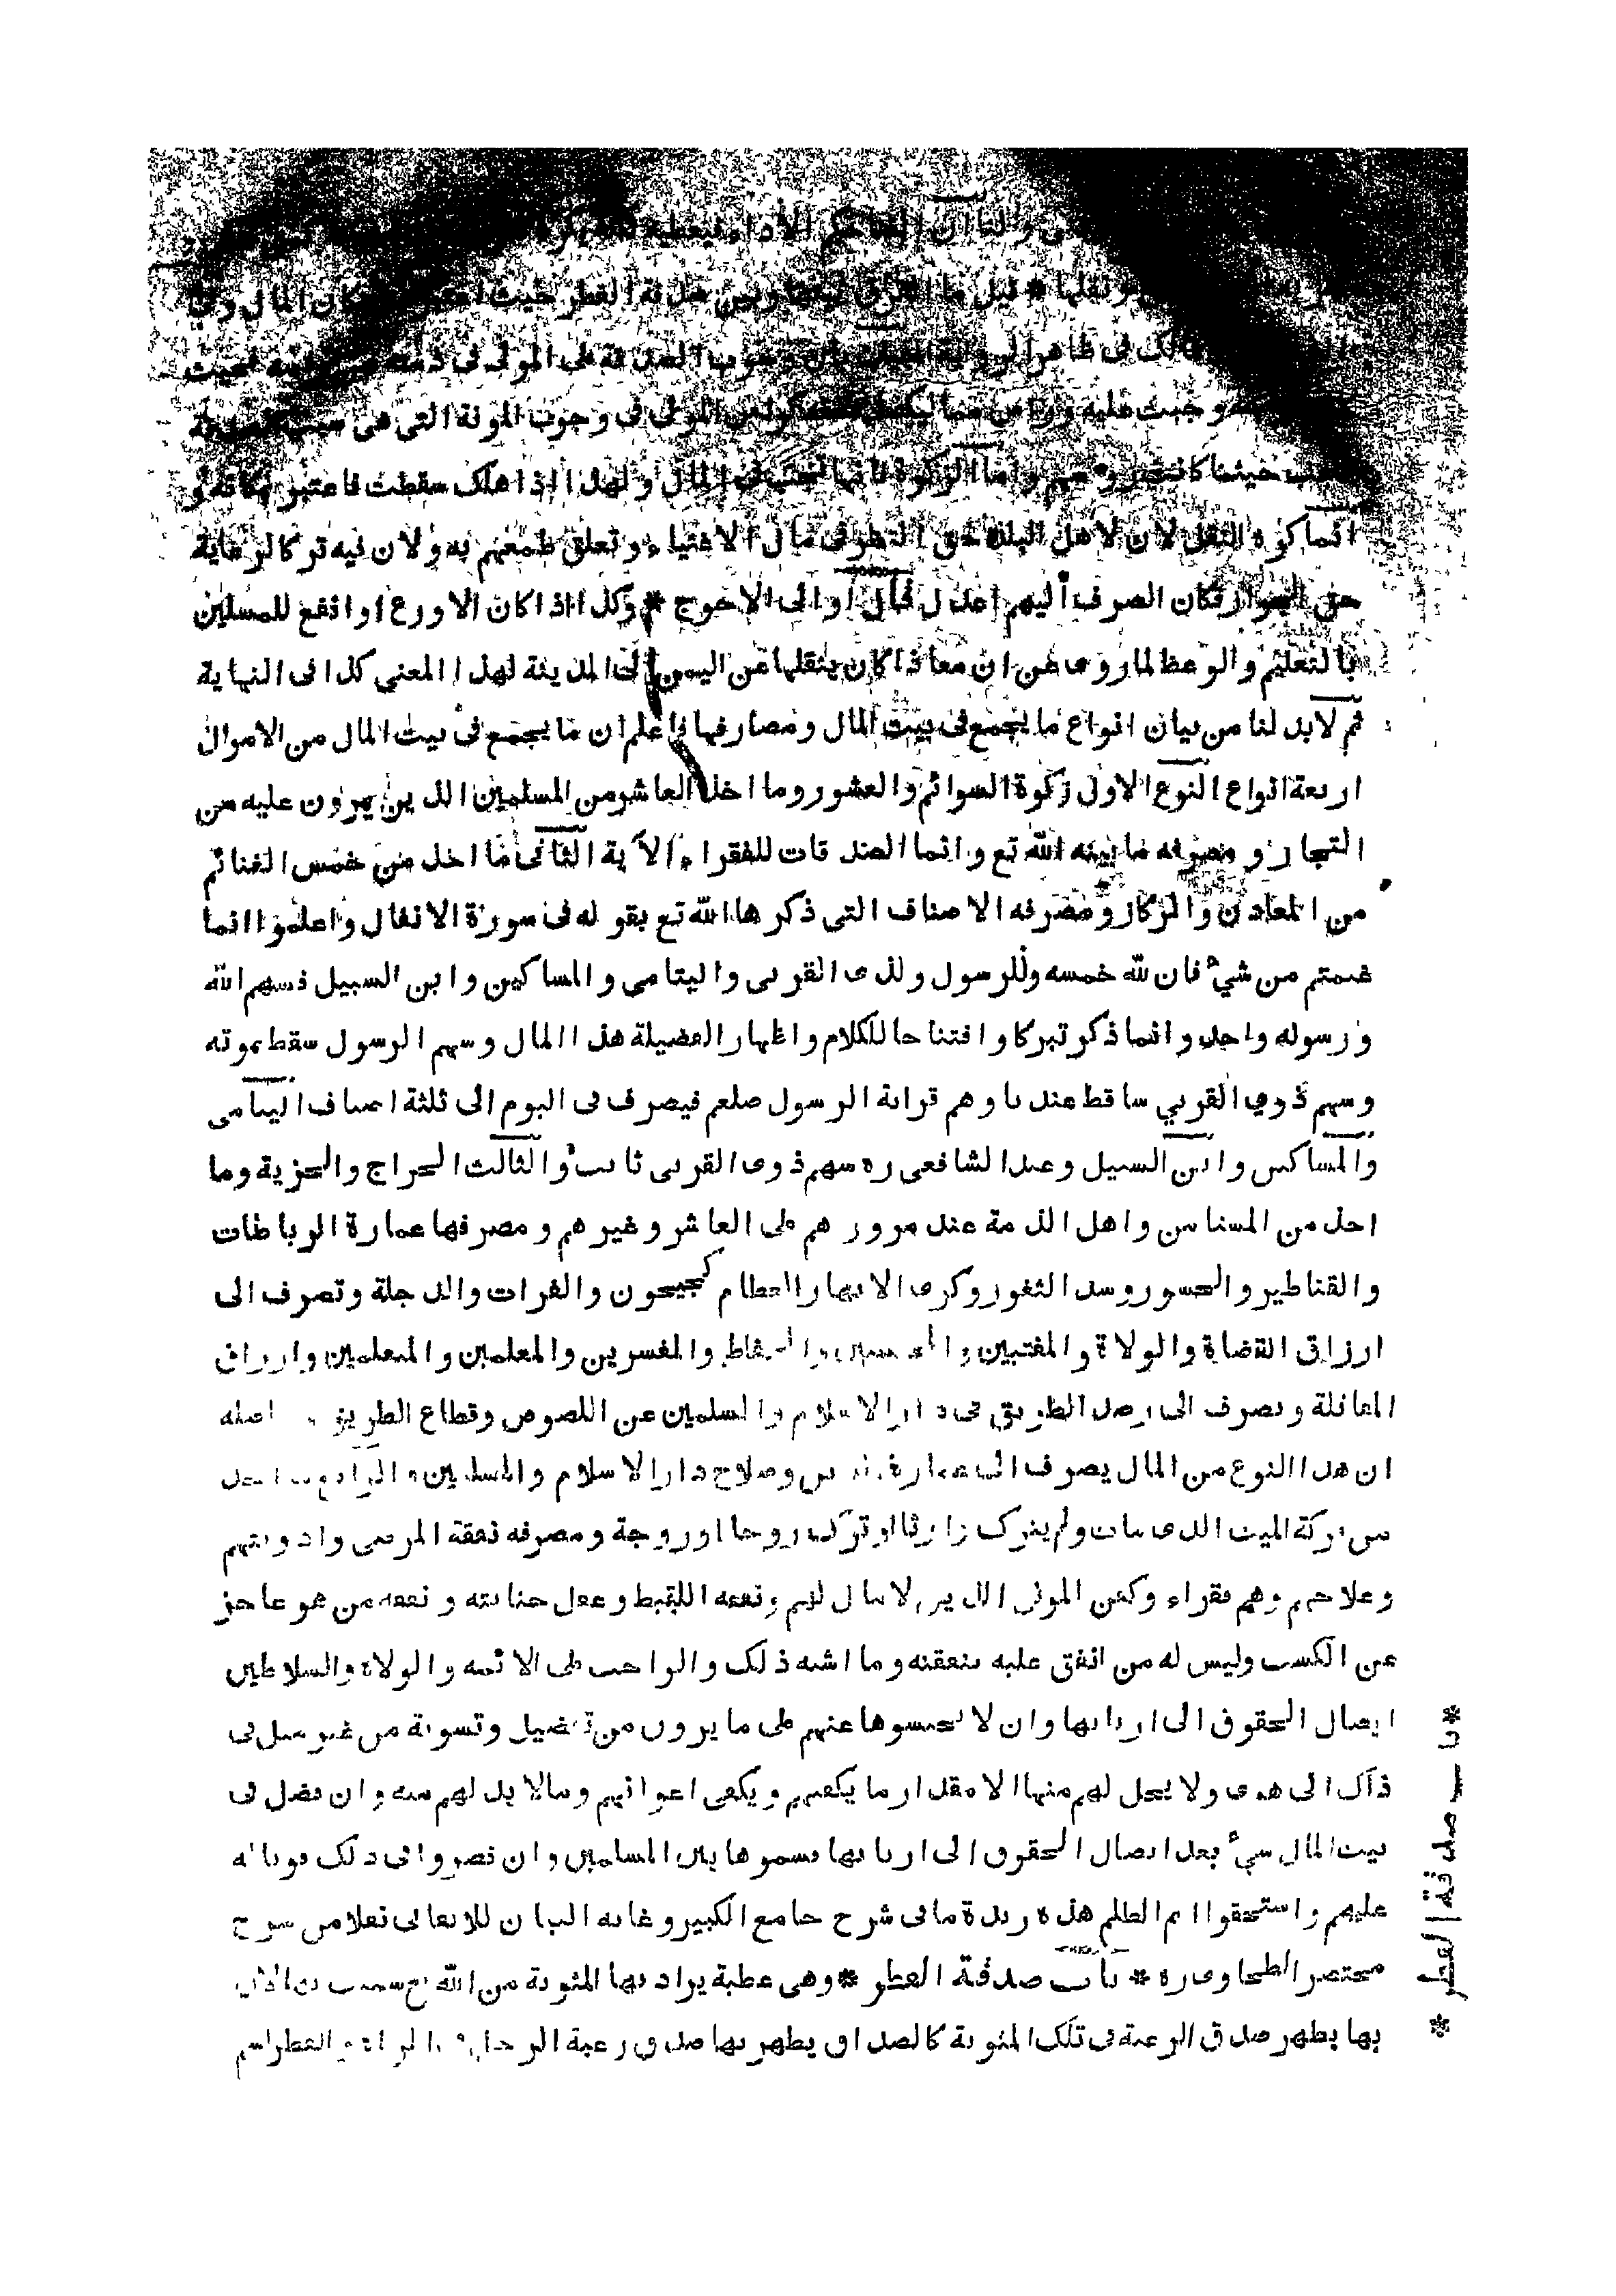 ولنا ان الأداء
ونقلها * قيل ما الفرق بينها وبين صدقة الفطر حيث مكان المال وفي
ذلك في ظاهر الرواية اجيب بان وجوب الصدقة على المولى في ذمته
وجبت عليه ورأس مماليكه في حقه كرأس المولى في وجوب المؤنة التي هي سبب الصدقة
حيثما كانت رؤسهم واما الزكوة فانها تجب في المال ولهذا اذا هلك سقطت فاعتبر مكانه و
انما كره النقل لان لاهل البلد حق التطرف مال الاغنياء وتعلق طمعهم به ولان فيه ترك الرعاية
حق الجوار فكان الصرف اليهم اعدل قال او الى الاحوج * وكذا اذا كان الاورع او انفع للمسلمين
بالتعليم والوعظ لما روى عن ان معاذا كان ينقلها عن اليمن الى المدينة لهذا المعنى كذا فى النهاية
ثم لابد لنا من بيان انواع ما يجمع فى بيت المال ومصارفها فاعلم ان ما يجمع فى بيت المال من الاموال
اربعة انواع النوع الاول زكوة السوائم والعشور وما اخذ العاشر من المسلمين الذين يمرون عليه من
التجار و مصرفه ما بينه الله تع و انما الصدقات للفقراء الآية الثانى ما اخذ من خمس الغنائم
من المعادن والركاز ومصرفه الاصناف التى ذكرها الله تع بقوله فى سورة الانفال واعلموا انما
غنمتم من شيء فان لله خمسه وللرسول ولذى القربى واليتامى والمساكين وابن السبيل فسهم الله
ورسوله واحد وانما ذكر تبركا وافتتاحا للكلام واظهارا لفضيلة هذا المال وسهم الرسول سقط بموته
وسهم ذوي القربي ساقط عندنا وهم قرابة الرسول صلعم فيصرف فى اليوم الى ثلثة اصناف اليتامى
والمساكين وابن السبيل وعند الشافعى ره سهم ذوى القربى ثابت والثالث الخراج والجزية وما
اخذ من المستامن واهل الذمة عند مرورهم على العاشر وغيرهم ومصرفها عمارة الرباطات
والقناطير والجسور وسد الثغور وكرى الانهار العظام كجيحون والفرات والدجلة وتصرف الى
ارزاق القضاة والولاة والمفتيين والمحتسبين والحفاظ والمفسرين والمعلمين والمتعلمين وارزاق
المقاتلة وتصرف الى رصد الطريق فى دار الاسلام والمسلمين عن اللصوص وقطاع الطريق اصله
ان هذا النوع من المال يصرف الى عمارة وصلاح دار الاسلام والمسلمين والرابع ما اخذ
من تركة الميت الذى مات ولم يترك وارثا او ترك زوجا او زوجة ومصرفه نفقة المرضى وادويتهم
وعلاجهم وهم فقراء وكفن الموتى الذين لا مال لهم ونفقة اللقيط وعقل جنايته ونفقة من هو عاجز
عن الكسب وليس له من انفق عليه بنفقته وما اشبه ذلك والواجب على الائمة والولاة والسلاطين
ايصال الحقوق الى اربابها وان لا يحبسوها عنهم على ما يرون من تفضيل وتسوية من غير ميل فى
ذلك الى هوى ولا يحل لهم منها الا مقدار ما يكفيهم ويكفى اعوانهم ومالا بد لهم منه وان فضل فى
بيت المال شيء بعد ايصال الحقوق الى اربابها قسموها بين المسلمين وان قصروا فى ذلك فوباله
عليهم واستحقوا اسم الظلم هذه زبدة ما فى شرح جامع الكبير وغاية البيان للاتقانى نقلا من شرح
مختصر الطحاوى ره * باب صدقة الفطر * وهى عطية يراد بها المثوبة من الله تع سميت
بها يظهر صدق الرغبة فى تلك المثوبة كالصداق يظهر بها صدق رغبة الرجل الفطر اسم
* باب صدقة الفطر *